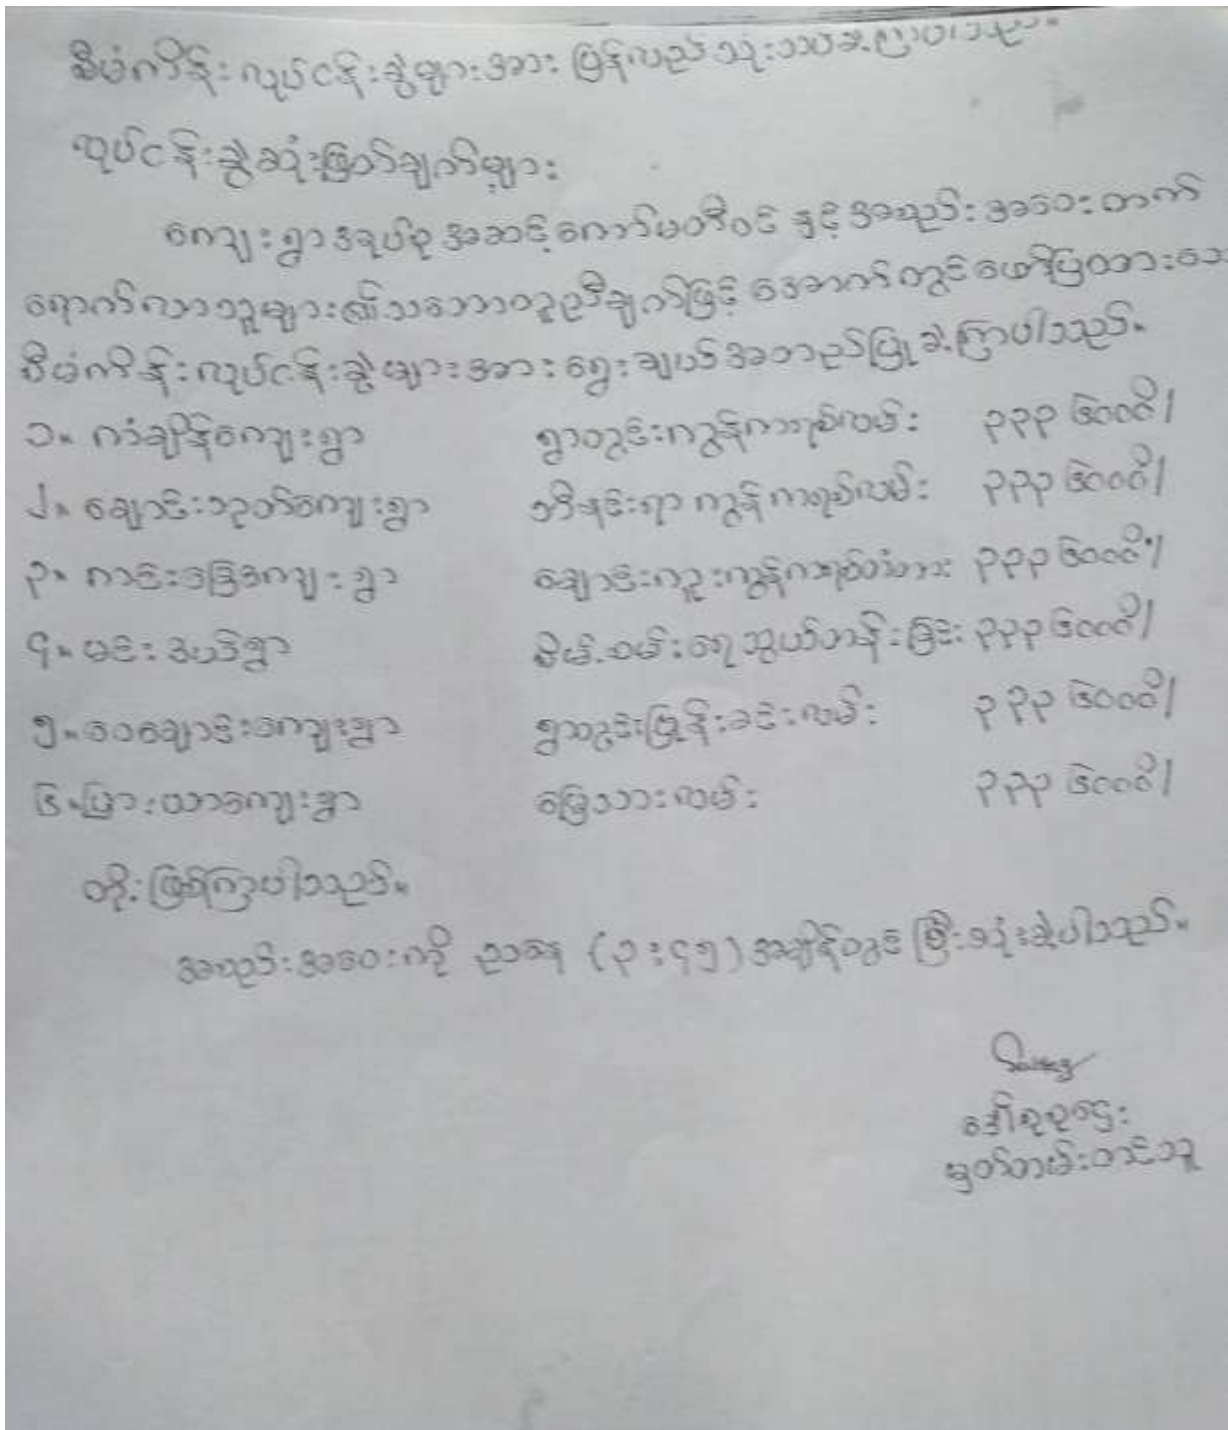 စီမံကိန်းလုပ်ငန်းခွဲများအား ပြန်လည်သုံးသပ်ခဲ့ကြပါသည်။
လုပ်ငန်းခွဲဆုံးဖြတ်ချက်များ
ကျေးရွာအုပ်စုအဆင့်ကော်မတီဝင် နှင့် အစည်းအဝေးတက်
ရောက်လာသူများ၏သဘောတူညီချက်ဖြင့် အောက်တွင်ဖော်ပြထားသော
စီမံကိန်းလုပ်ငန်းခွဲများအား ရွေးချယ်အတည်ပြုခဲ့ကြပါသည်။
၁။ ကံချိန်ကျေးရွာ ရွာတွင်းကွန်ကရစ်လမ်း ၃၃၃၆၀၀ဝိ/
၂။ ချောင်းညွတ်ကျေးရွာ ဘိနင်းရာ ကွန်ကရစ်လမ်း ၃၃၃၆၀၀ဝိ/
၃။ ကင်းခြေကျေးရွာ ချောင်းကူးကွန်ကရစ်တံတား ၃၃၃၆၀၀ဝိ/
၄။ မင်းအယ်ရွာ စိမ့်စမ်းရေသွယ်တန်းခြင်း ၃၃၃၆၀၀ဝိ/
၅။ ဝေချောင်းကျေးရွာ ရွာတွင်းဖြူန်းခင်းလမ်း ၃၃၃၆၀၀ဝိ/
၆။ ပြားယာကျေးရွာ မြေသားလမ်း ၃၃၃၆၀၀ဝိ/
တို့ဖြစ်ကြပါသည်။
အစည်းအဝေးကို ညနေ (၃:၄၅) အချိန်တွင် ပြီးဆုံးခဲ့ပါသည်။
ဒေါ်စုစုဌေး
မှတ်တမ်းတင်သူ